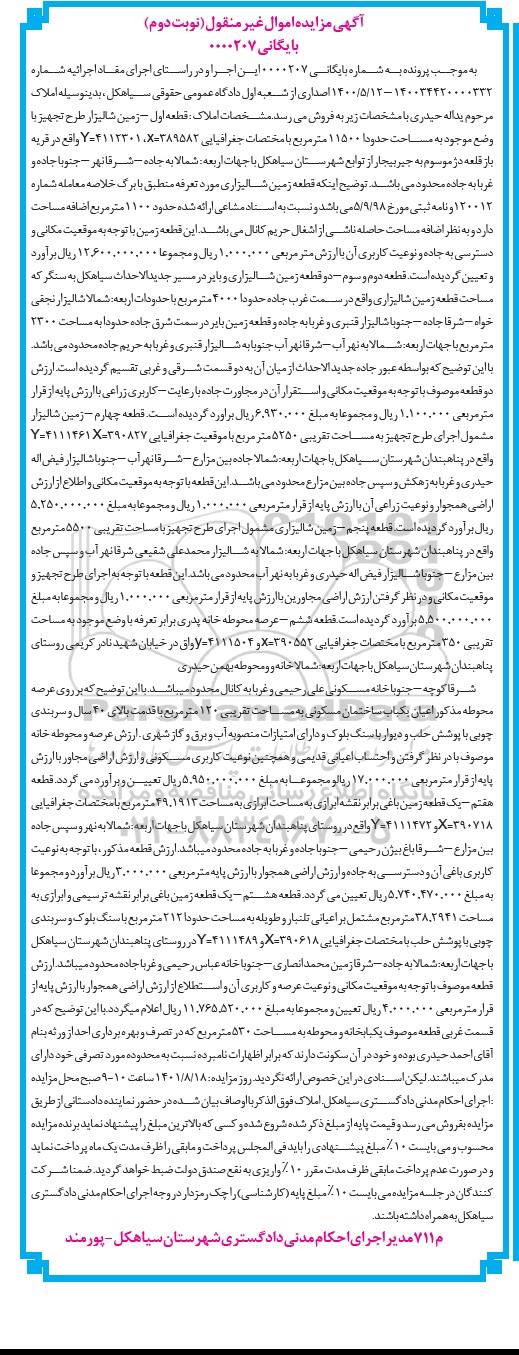 آگهی مزایده اموال غیر منقول (نوبت دوم)
بایگانی ۰۰۰۰۲۰۷
به موجب پرونده به شماره بایگانی ۰۰۰۰۲۰۷ این اجرا و در راستای اجرای مفاد اجرائیه شماره
۱۴۰۰۳۴۴۲۰۰۰۰۳۳۲ – ۱۴۰۰/۵/۱۲ اصداری از شعبه اول دادگاه عمومی حقوقی سیاهکل، بدینوسیله املاک
مرحوم یداله حیدری با مشخصات زیر به فروش می رسد. مشخصات املاک : قطعه اول – زمین شالیزار طرح تجهیز با
وضع موجود به مساحت حدودا ۱۱۵۰۰ متر مربع با مختصات جغرافیایی x=۳۸۹۵۸۲، Y=۴۱۱۲۳۰۱ واقع در قریه
باز قلعه دژ موسوم به جیربیجار از توابع شهرستان سیاهکل با جهات اربعه : شمالا به جاده – شرقا نهر – جنوبا جاده و
غربا به جاده محدود می باشد. توضیح اینکه قطعه زمین شالیزاری مورد تعرفه منطبق با برگ خلاصه معامله شماره
۱۲۰۰۱۲ و نامه ثبتی مورخ ۵/۹/۹۸ می باشد و نسبت به اسناد مشاعی ارائه شده حدود ۱۱۰۰ متر مربع اضافه مساحت
دارد و به نظر اضافه مساحت حاصله ناشی از اشغال حریم کانال می باشد. این قطعه زمین با توجه به موقعیت مکانی و
دسترسی به جاده و نوعیت کاربری آن با ارزش متر مربعی ۱.۰۰۰.۰۰۰ ریال و مجموعا ۱۲.۶۰۰.۰۰۰.۰۰۰ ریال برآورد
و تعیین گردیده است. قطعه دوم و سوم – دو قطعه زمین شالیزاری و بایر در مسیر جدیدالاحداث سیاهکل به سنگر که
مساحت قطعه زمین شالیزاری واقع در سمت غرب جاده حدودا ۴۰۰۰ متر مربع با حدودات اربعه: شمالا شالیزار نجفی
خواه – شرقا جاده – جنوبا شالیزار قنبری و غربا به جاده و قطعه زمین بایر در سمت شرق جاده حدودا به مساحت ۲۳۰۰
متر مربع با جهات اربعه: شمالا به نهر آب – شرقا نهر آب جنوبا به شالیزار قنبری و غربا به حریم جاده محدود می باشد.
با این توضیح که بواسطه عبور جاده جدیدالاحداث از میان آن به دو قسمت شرقی و غربی تقسیم گردیده است. ارزش
دو قطعه موصوف با توجه به موقعیت مکانی و استقرار آن در مجاورت جاده با رعایت – کاربری زراعی با ارزش پایه از قرار
متر مربعی ۱.۱۰۰.۰۰۰ ریال و مجموعا به مبلغ ۶.۹۳۰.۰۰۰ ریال براورد گردیده است. قطعه چهارم – زمین شالیزار
مشمول اجرای طرح تجهیز به مساحت تقریبی ۵۲۵۰ متر مربع با موقعیت جغرافیایی X=۳۹۰۸۲۷ Y=۴۱۱۱۴۶۱
واقع در پناهبندان شهرستان سیاهکل با جهات اربعه: شمالا جاده بین مزارع – شرقا نهر آب – جنوبا شالیزار فیض اله
حیدری و غربا به زهکش و سپس جاده بین مزارع محدود می باشد. این قطعه با توجه به موقعیت مکانی و اطلاع از ارزش
اراضی همجوار و نوعیت زراعی آن با ارزش پایه از قرار متر مربعی ۱.۰۰۰.۰۰۰ ریال و مجموعا به مبلغ ۵.۲۵۰.۰۰۰.۰۰۰
ریال بر آورد گردیده است. قطعه پنجم – زمین شالیزاری مشمول اجرای طرح تجهیز با مساحت تقریبی ۵۵۰۰ متر مربع
واقع در پناهبندان شهرستان سیاهکل با جهات اربعه: شمالا به شالیزار محمدعلی شفیعی شرقا نهر آب و سپس جاده
بین مزارع – جنوبا شالیزار فیض اله حیدری و غربا به نهر آب محدود می باشد. این قطعه با توجه به اجرای طرح تجهیز و
موقعیت مکانی و در نظر گرفتن ارزش اراضی مجاورین با ارزش پایه از قرار متر مربعی ۱.۰۰۰.۰۰۰ ریال و مجموعا به مبلغ
۵.۵۰۰.۰۰۰.۰۰۰ بر آورد گردیده است. قطعه ششم – عرصه محوطه خانه پدری برابر تعرفه با وضع موجود به مساحت
تقریبی ۳۵۰ متر مربع با مختصات جغرافیایی x=۳۹۰۵۵۲ و y=۴۱۱۱۵۰۴ واق در خیابان شهید نادر کریمی روستای
پناهبندان شهرستان سیاهکل با جهات اربعه: شمالا خانه و محوطه بهمن حیدری
شرقا کوچه – جنوبا خانه مسکونی علی رحیمی و غربا به کانال محدود میباشد. با این توضیح که بر روی عرصه
محوطه مذکور اعیان یکباب ساختمان مسکونی به مساحت تقریبی ۱۲۰ متر مربع با قدمت بالای ۴۰ سال و سربندی
چوبی با پوشش حلب و دیوار با سنگ بلوک و دارای امتیازات منصوبه آب و برق و گاز شهری. ارزش عرصه و محوطه خانه
موصوف با در نظر گرفتن و احتساب اعیانی قدیمی و همچنین نوعیت کاربری مسکونی و ارزش اراضی مجاور با ارزش
پایه از قرار متر مربعی ۱۷.۰۰۰.۰۰۰ ریال و مجموعا به مبلغ ۵.۹۵۰.۰۰۰.۰۰۰ ریال تعیین و برآورد می گردد. قطعه
هفتم – یک قطعه زمین باغی برابر نقشه ابرازی به مساحت ابرازی به مساحت ۴۹.۱۹۱۳ متر مربع با مختصات جغرافیایی
X=۳۹۰۷۱۸ و Y=۴۱۱۱۴۷۲ واقع در روستای پناهبندان شهرستان سیاهکل با جهات اربعه: شمالا به نهر و سپس جاده
بین مزارع – شرقا باغ بیژن رحیمی – جنوبا جاده و غربا به جاده محدود میباشد. ارزش قطعه مذکور، با توجه به نوعیت
کاربری باغی آن و دسترسی به جاده و ارزش اراضی همجوار با ارزش پایه متر مربعی ۳.۰۰۰.۰۰۰ ریال بر آورد و مجموعا
به مبلغ ۵.۷۴۰.۴۷۰.۰۰۰ ریال تعیین می گردد. قطعه هشتم – یک قطعه زمین باغی برابر نقشه ترسیمی و ابرازی به
مساحت ۳۸.۲۹۴۱ متر مربع مشتمل بر اعیانی تلنبار و طویله به مساحت حدودا ۲۱۲ متر مربع با سنگ بلوک و سربندی
چوبی با پوشش حلب با مختصات جغرافیایی X=۳۹۰۶۱۸ و Y=۴۱۱۱۴۸۹ در روستای پناهبندان شهرستان سیاهکل
با جهات اربعه: شمالا به جاده – شرقا زمین محمد انصاری – جنوبا خانه عباس رحیمی و غربا جاده محدود میباشد. ارزش
قطعه موصوف با توجه به موقعیت مکانی و نوعیت عرصه و کاربری آن و استطلاع از ارزش اراضی همجوار با ارزش پایه از
قرار متر مربعی ۴.۰۰۰.۰۰۰ ریال تعیین و مجموعا به مبلغ ۱۱.۷۶۵.۵۲۰.۰۰۰ ریال اعلام میگردد. با این توضیح که در
قسمت غربی قطعه موصوف یکبابخانه و محوطه به مساحت ۵۳۰ متر مربع که در تصرف و بهره برداری احد از ورثه بنام
آقای احمد حیدری بوده و خود در آن سکونت دارند که برابر اظهارات نامبرده نسبت به محدوده مورد تصرفی خود دارای
مدرک میباشند. لیکن اسنادی در این خصوص ارائه نگردید. روز مزایده : ۱۴۰۱/۸/۱۸ ساعت ۱۰–۹ صبح محل مزایده
:اجرای احکام مدنی دادگستری سیاهکل. املاک فوق الذکر با اوصاف بیان شده در حضور نماینده دادستانی از طریق
مزایده بفروش می رسد و قیمت پایه از مبلغ ذکر شده شروع شده و کسی که بالاترین مبلغ را پیشنهاد نماید برنده مزایده
محسوب و می بایست ۱۰٪ مبلغ پیشنهادی را باید فی المجلس پرداخت و مابقی را ظرف مدت یک ماه پرداخت نماید
و در صورت عدم پرداخت مابقی ظرف مدت مقرر ۱۰٪ واریزی به نفع صندق دولت ضبط خواهد گردید. ضمنا شرکت
کنندگان در جلسه مزایده می بایست ۱۰٪ مبلغ پایه (کارشناسی) را چک رمزدار در وجه اجرای احکام مدنی دادگستری
سیاهکل به همراه داشته باشند.
م۷۱۱ مدیر اجرای احکام مدنی دادگستری شهرستان سیاهکل - پورمند